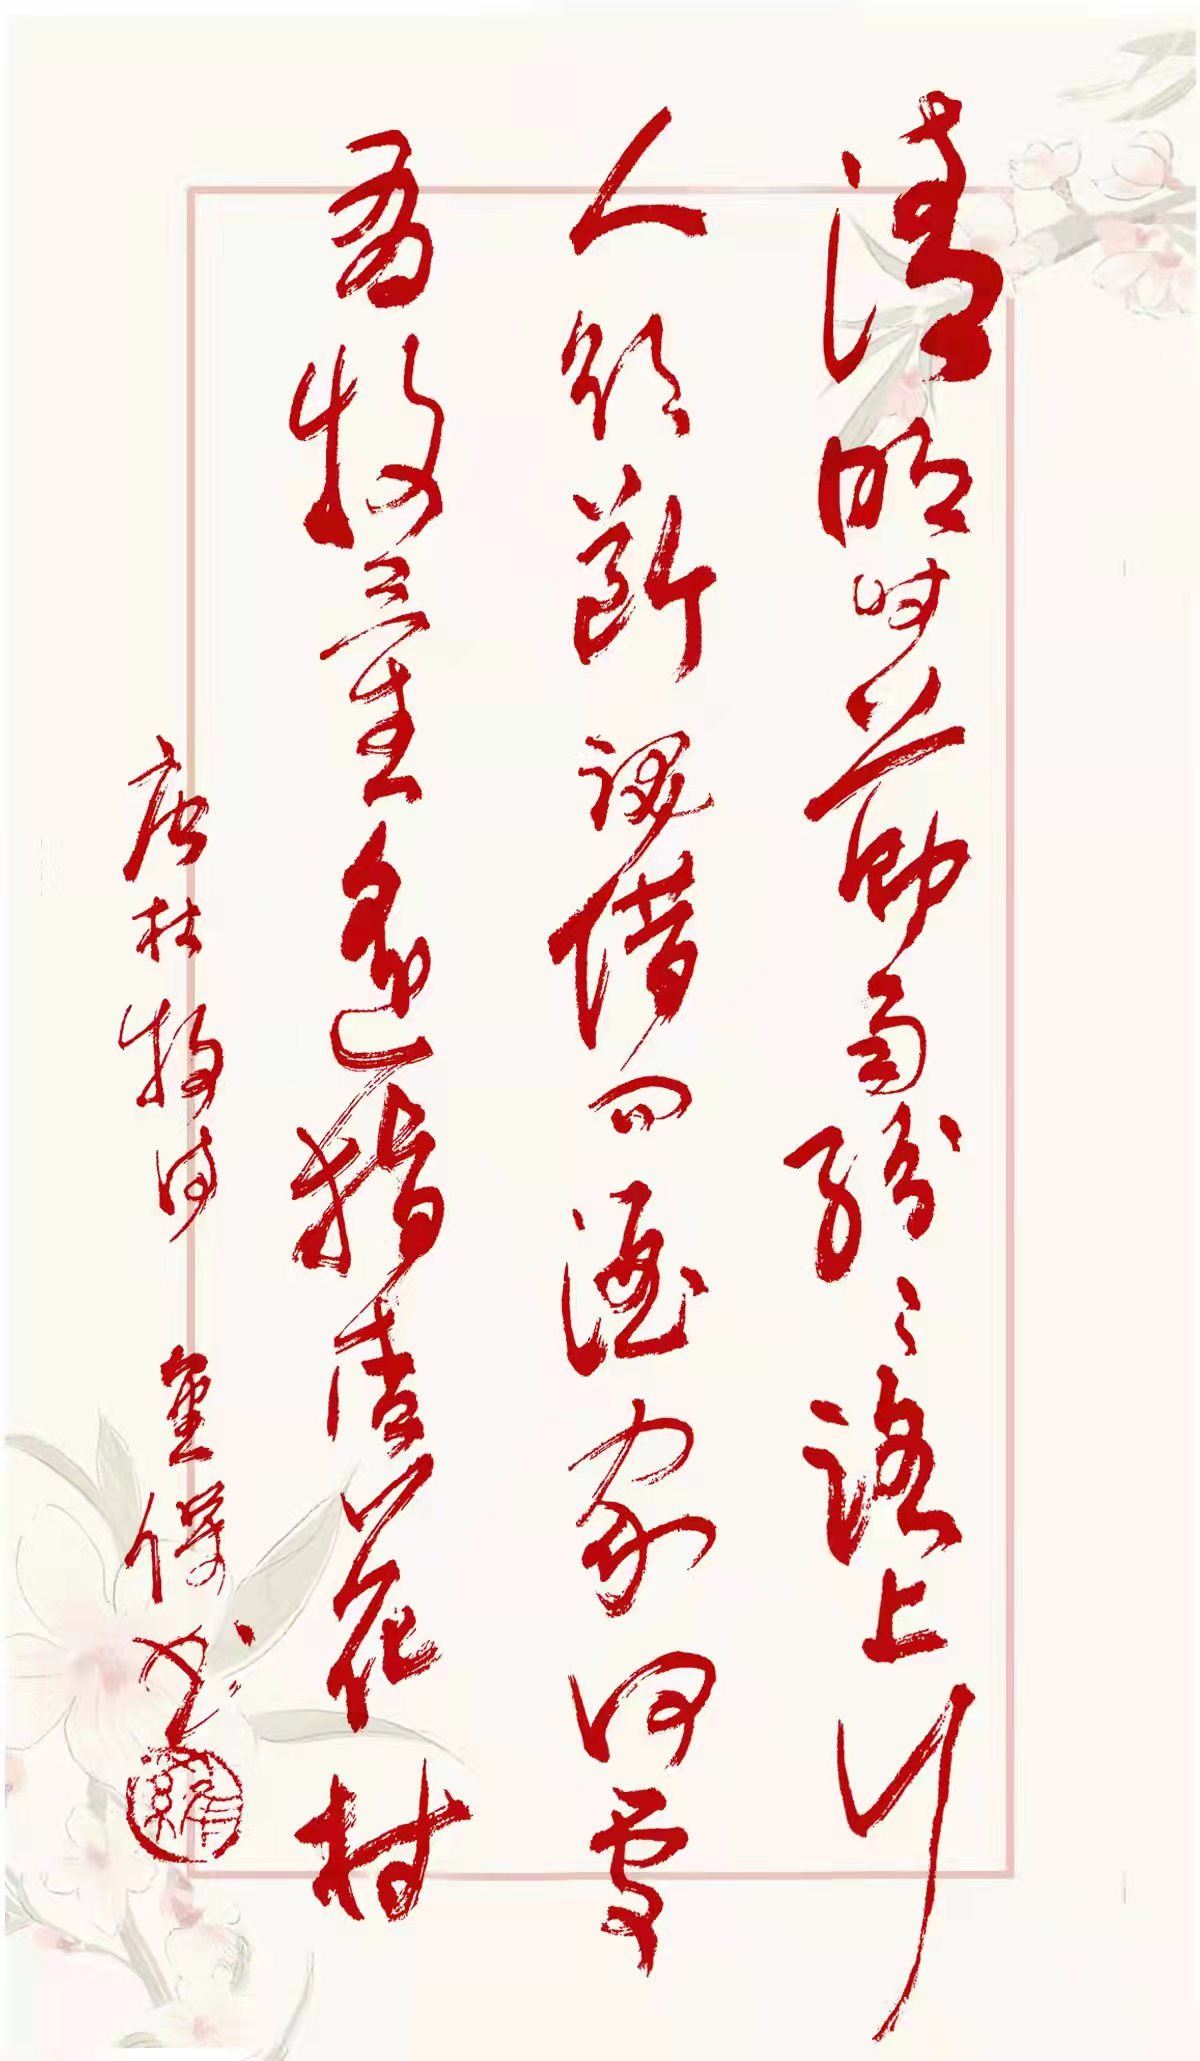 清明时節雨紛〻路上行
人欲斷魂借问酒家何處
有牧童遥指杏花村
唐杜牧诗 保书